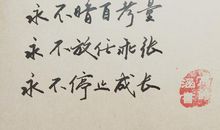 永不暗自夸耀
永不放任乖张
永不停止成长